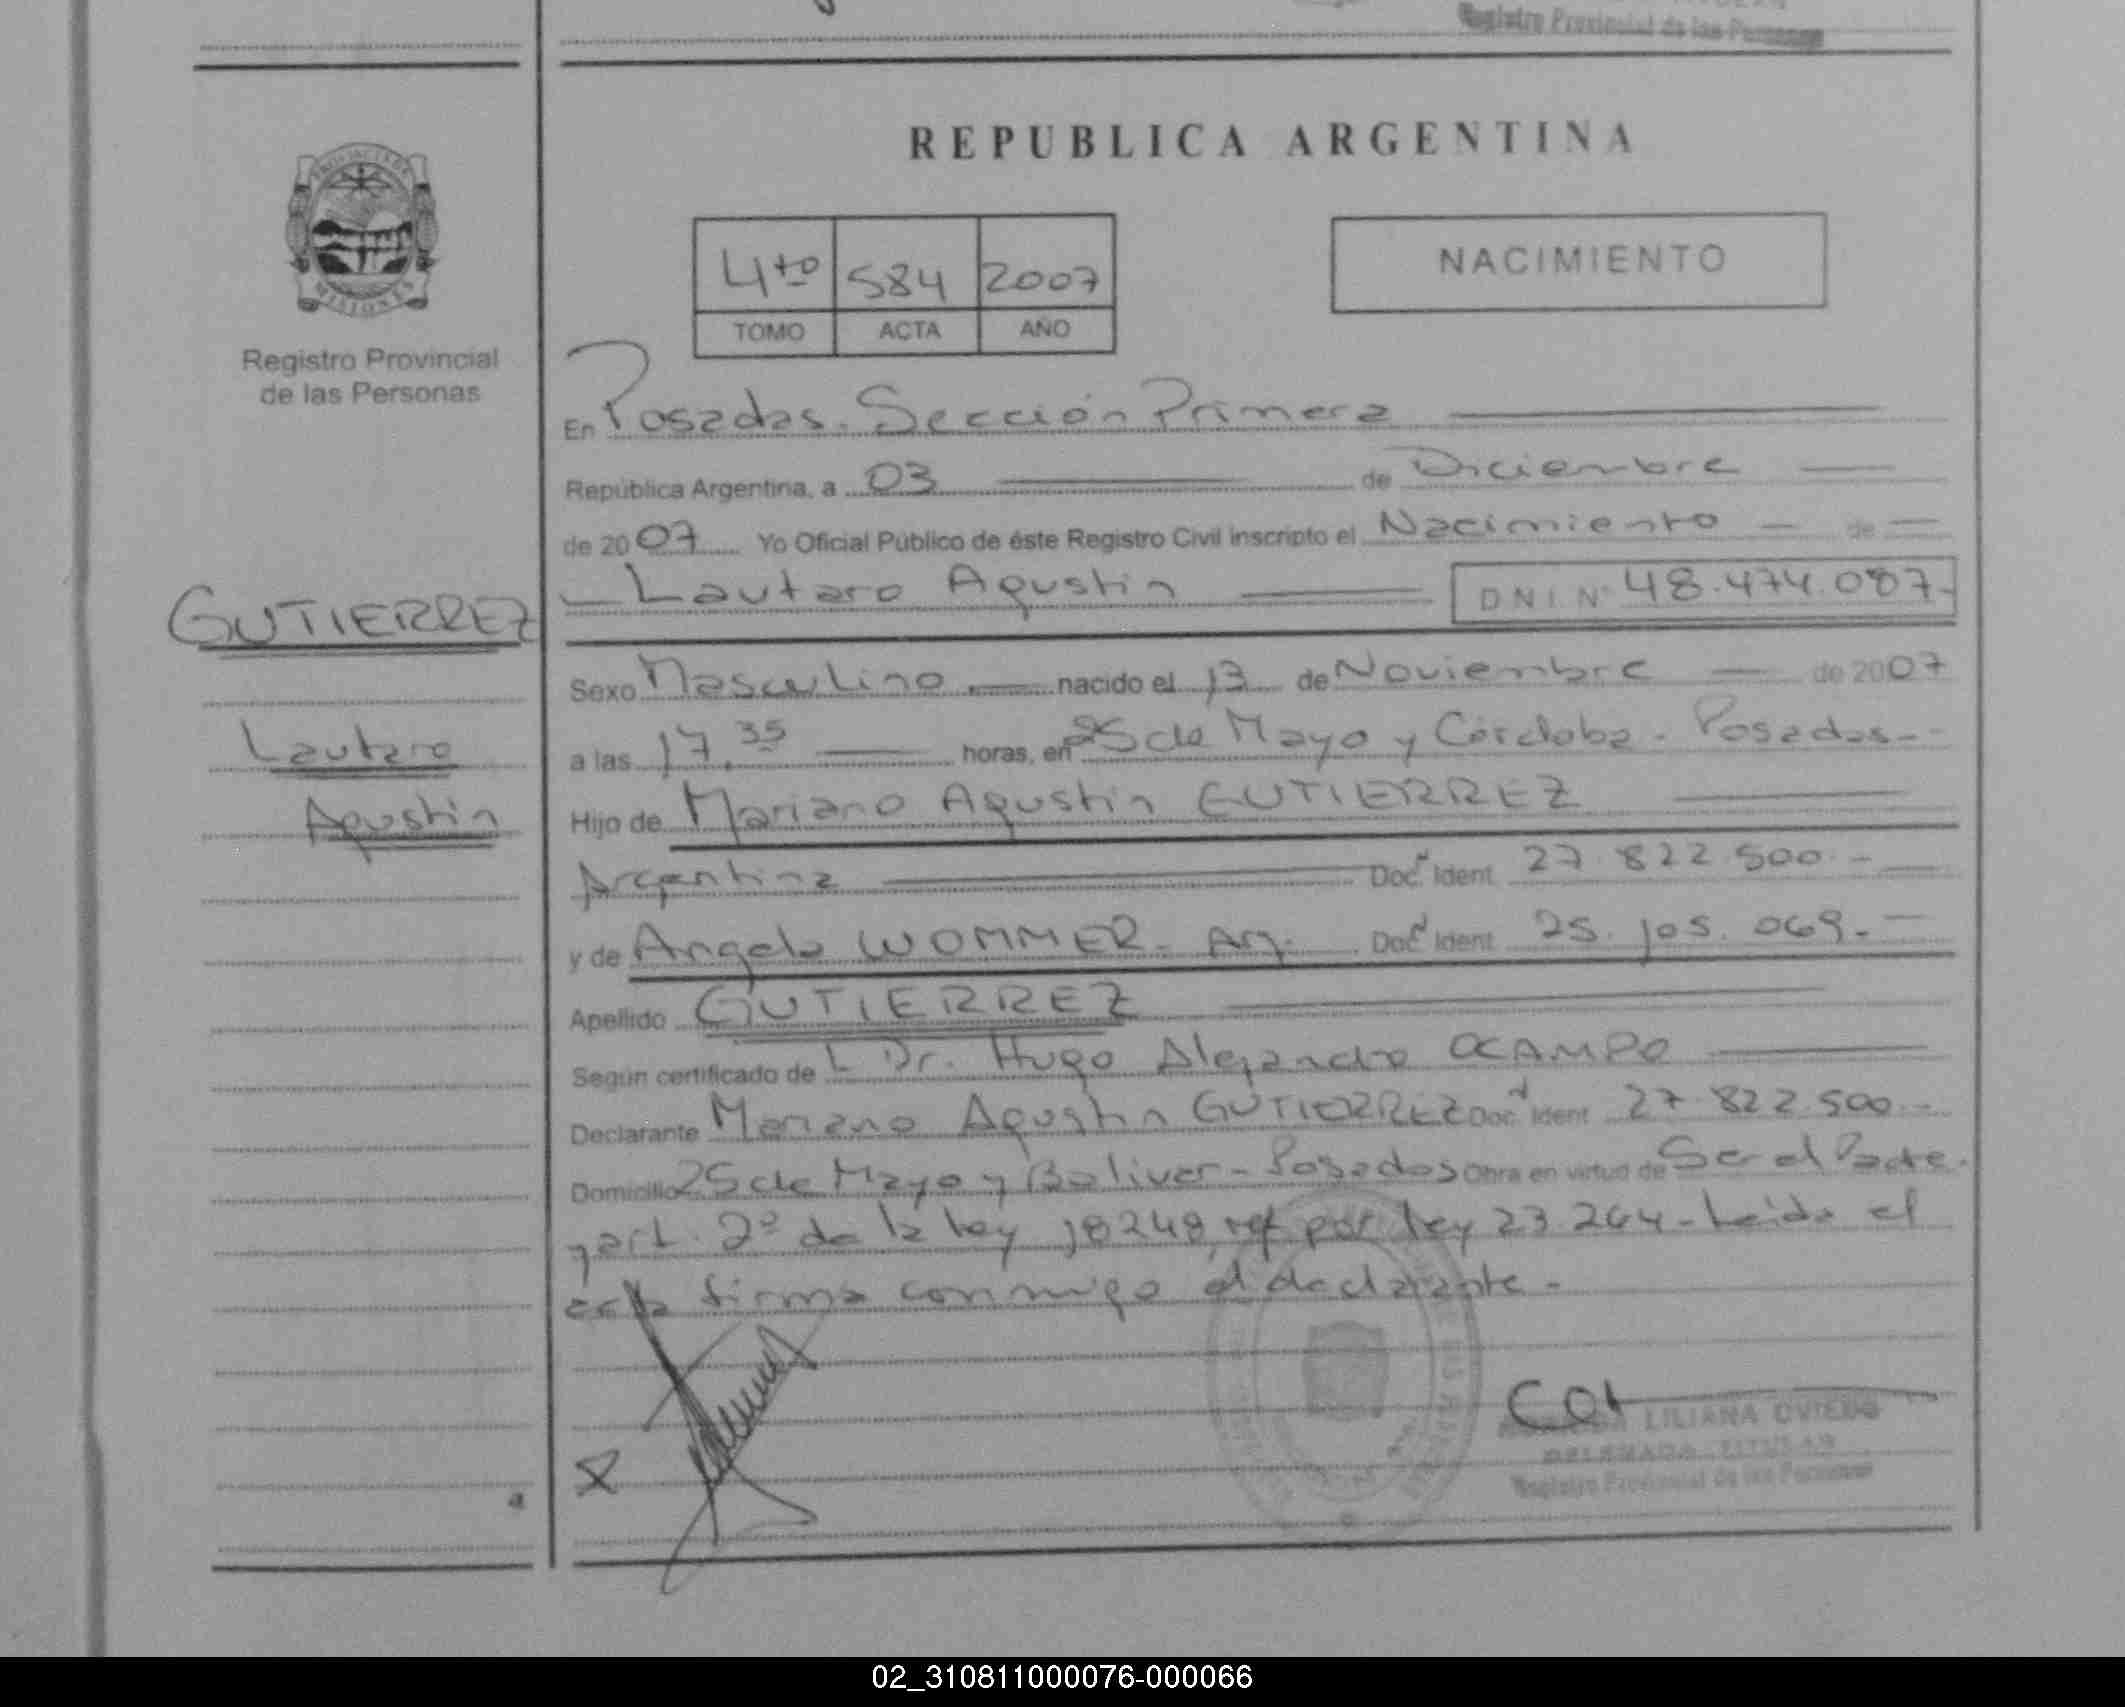 Registro Provincial de las Personas
REPUBLICA ARGENTINA
PROVINCIA DE
MISIONES
Registro Provincial
de las Personas
4to 584 2007
TOMO ACTA AÑO
NACIMIENTO
En Posadas. Sección Primera
República Argentina, a 03 de Diciembre
de 2007 Yo Oficial Público de éste Registro Civil inscripto el Nacimiento de
Lautaro Agustin D N I. Nº 48.474.087.-
GUTIERREZ
Lautaro
Agustin
Sexo Masculino nacido el 13 de Noviembre de 2007
a las 17.35 horas, en 25 de Mayo y Córdoba - Posadas--
Hijo de Mariano Agustin GUTIERREZ
Argentina Doc. Ident 27.822.500.-
y de Angela WOMMER. Arg. Doc. Ident 25.105.069.-
Apellido GUTIERREZ
Según certificado de L Dr. Hugo Alejandro OCAMPO
Declarante Mariano Agustin GUTIERREZ Doc. Ident 27.822.500.-
Domicilio 25 de Mayo y Bolivar - Posadas Obra en virtud de Ser el Padre.
y art. 2º de la ley 18248, ref por ley 23.264 - Leída el
acta firma conmigo el declarante -
LILIANA OVIEDO
DELEGADA TITULAR
Registro Provincial de las Personas
02_310811000076-000066